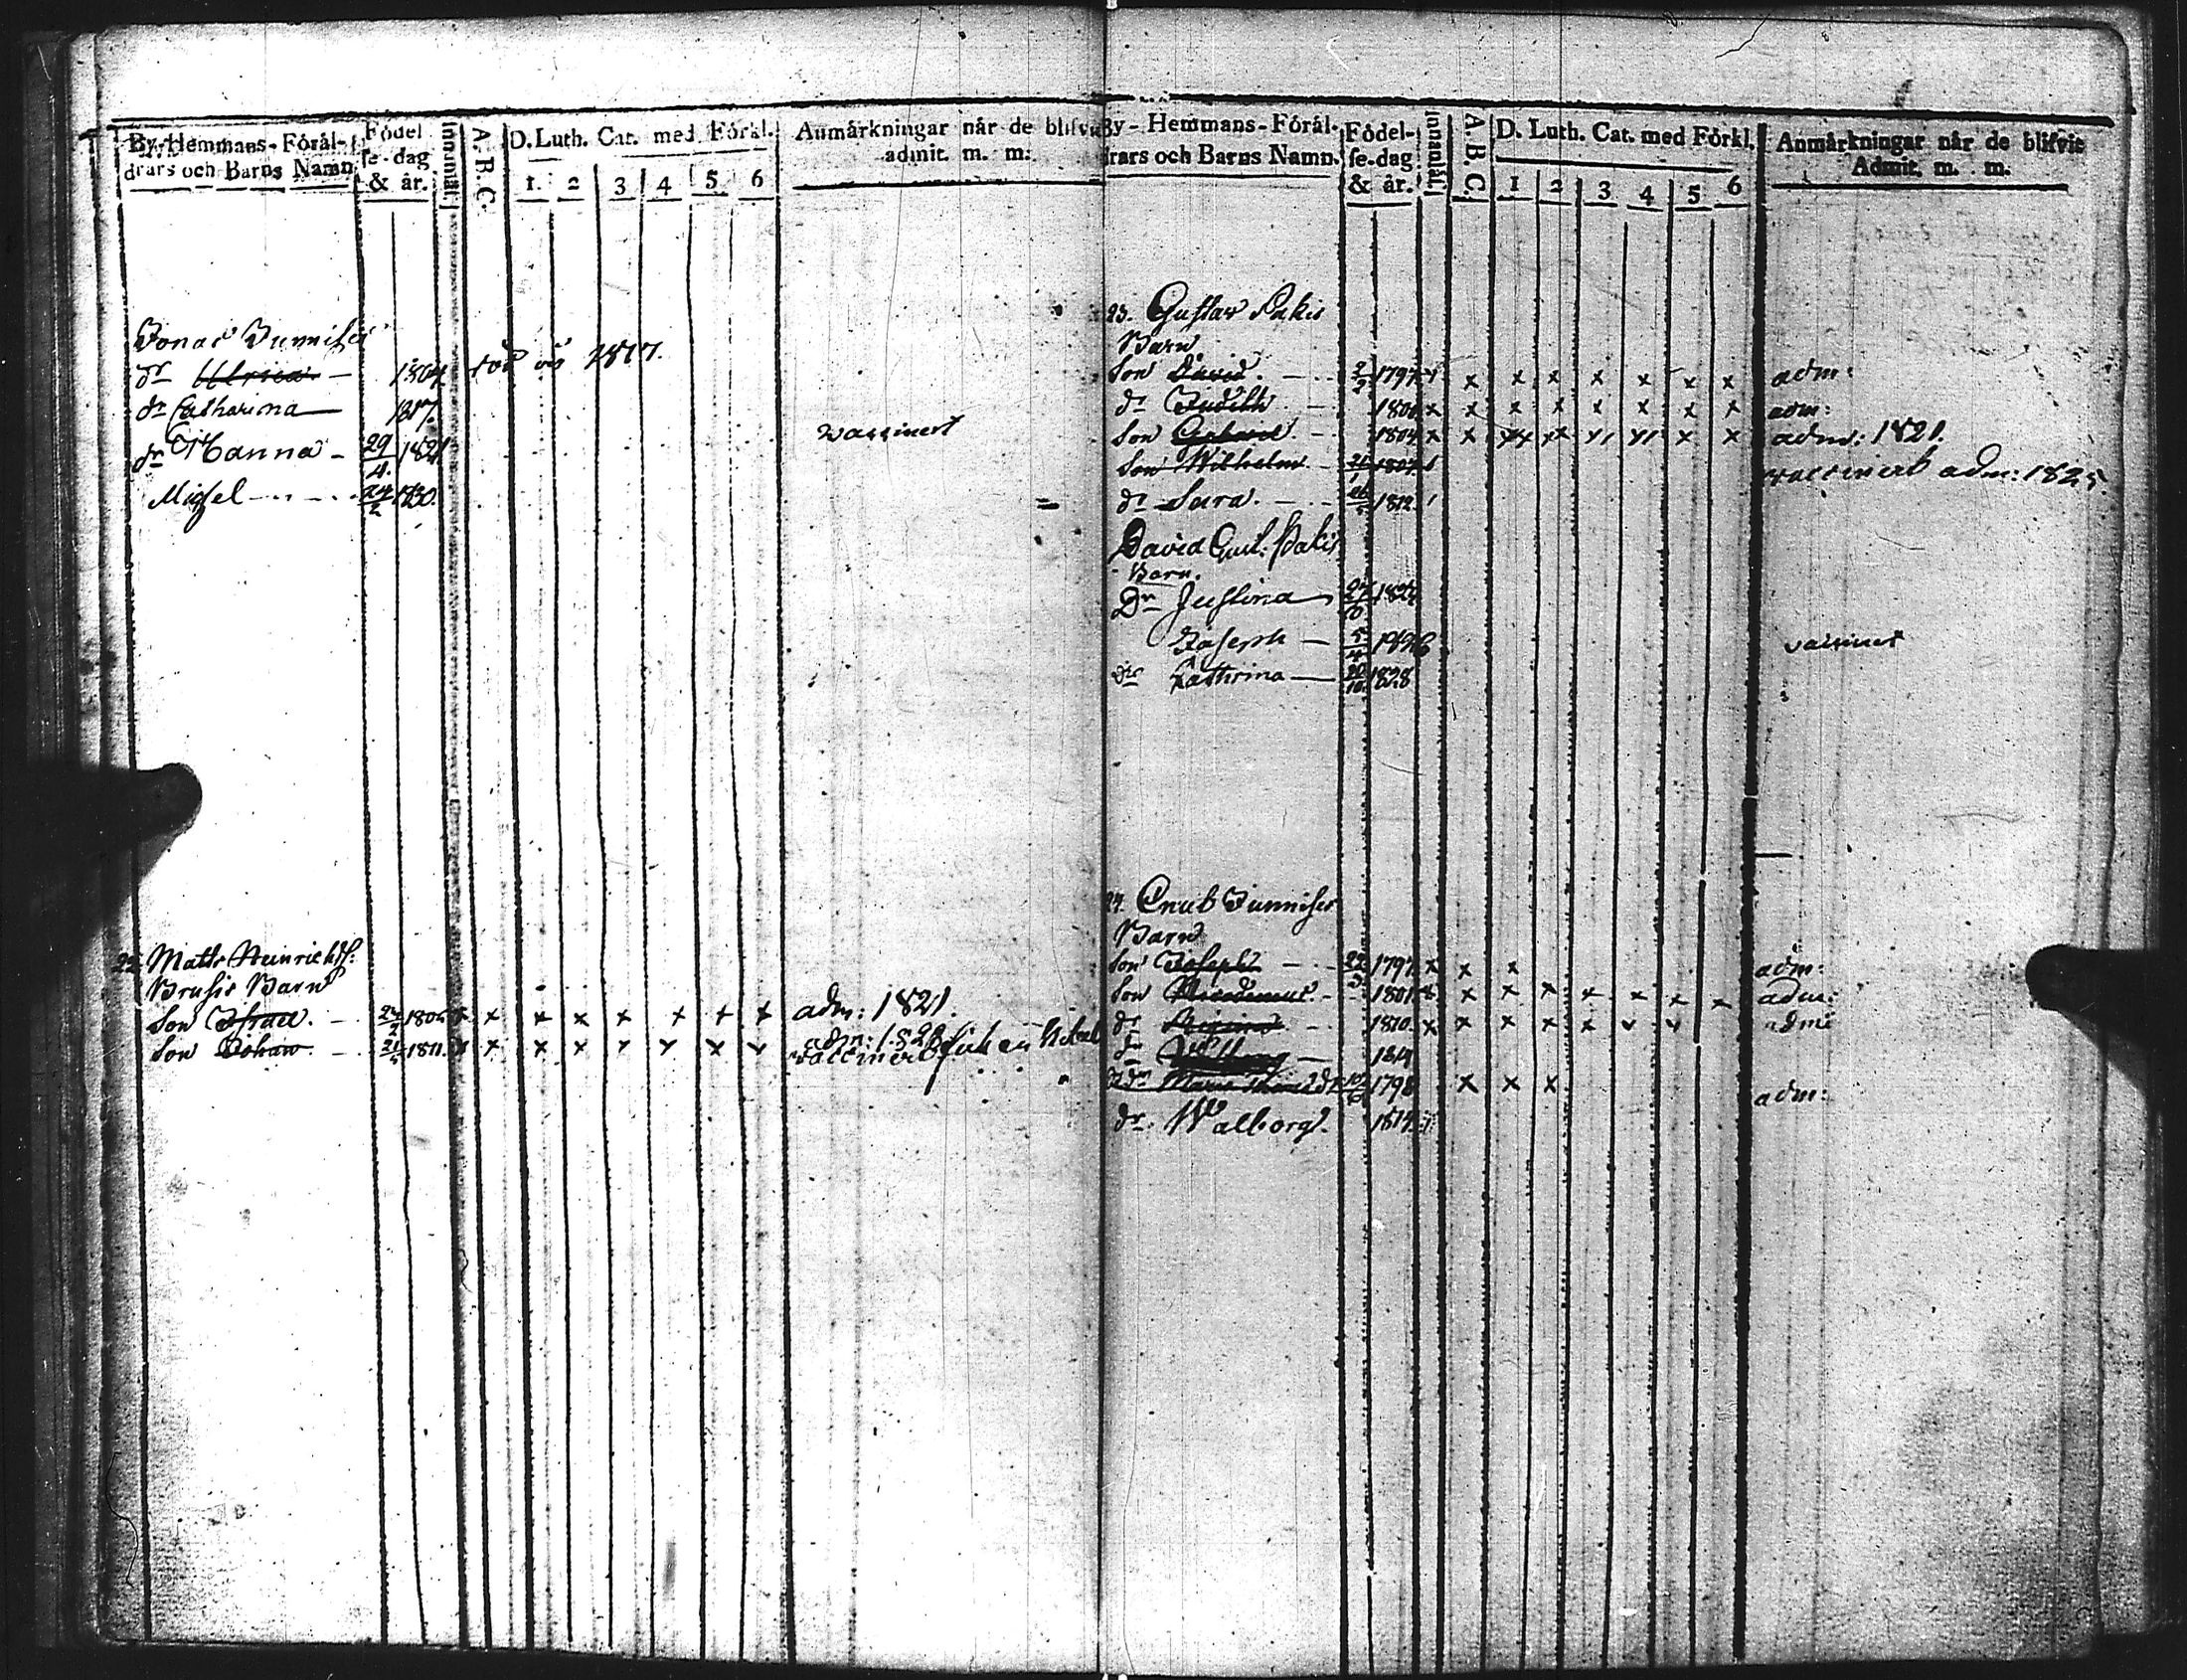 By-Hemmans-Föräl-
drars och Barns Namn
Födel
se-dag
& år.
Innanläs.
A. B. C.
D. Luth. Cat. med Förkl.
1. 2 3 4 5 6
Anmärkningar när de blifvit
admit. m. m.
Jonas Junnises
dr Ulrica 1804 död 1817.
dr Catharina 1817.
dr Hanna 29/4. 1821 vaccinert
Migel 24/2 1830.
22. Matts Heinrichss:
Brusis Barn
Son Israel. 24/2 1806. x x x x x x x x adm: 1821.
Son Johan. 21/5 1811. x x x x x x x adm: 182
vaccinerb
By-Hemmans-Föräl-
drars och Barns Namn.
Födel-
se-dag
& år.
Innanläs.
A. B. C.
D. Luth. Cat. med Förkl.
1 2 3 4 5 6
Anmärkningar när de blifvit
Admit. m. m.
23. Gustav Pakis
Barn
Son David. 2/2 1797. x x x x x x x adm:
dr Judith. 1800 x x x x x x x x adm:
Son Gabriel. 1804 x x xx xx x x adm: 1821.
Son Wilhelm 21/1 1807 vaccinerb adm: 1825.
dr Sara. 1812.
David Gust: Pakis
Barn.
Dr Justina 1824
Joseph 5/4 1826 vaccinert
dr Cathrina 20/10. 1828
24. Cnut Junnises
Barn
Son Joseph 22/3 1797. x x x adm:
Son Nicodemus. 1801. x x x x x x x x adm:
dr 1810. x x x x x adm:
dr 1814
Maria 1798 x x x adm:
dr. Walborg. 1814.